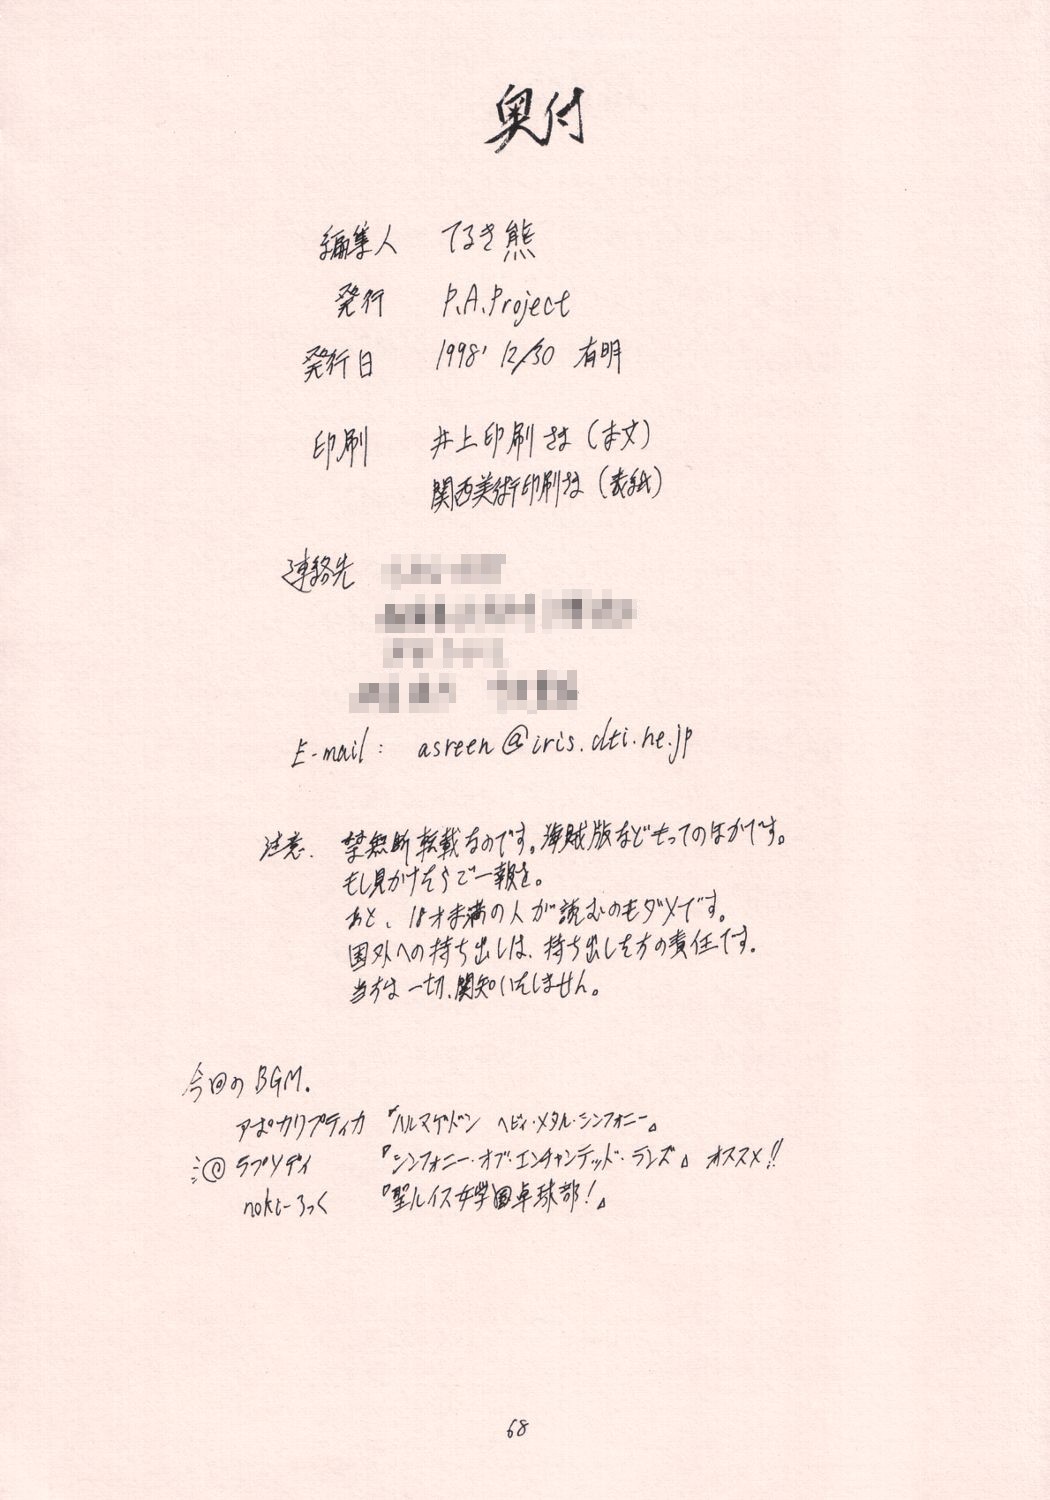 奥付
編集人 てるき熊
発行 P.A.Project
発行日 1998' 12/30 有明
印刷 井上印刷さま（本文）
関西美術印刷さま（表紙）
連絡先
E-mail: asreen@iris.dti.ne.jp
注意. 禁無断転載なのです。海賊版などもってのほかです。
もし見かけたらご一報を。
あと、18才未満の人が読むのもダメです。
国外への持ち出しは、持ち出した方の責任です。
当方は一切、関知いたしません。
今回のBGM.
アポカリプティカ 『ハルマゲドン ヘビィ・メタル・シンフォニー』
ラプソディ 『シンフォニー・オブ・エンチャンテッド・ランズ』 オススメ!!
noki-ろっく 『聖ルイス女学園卓球部!』
68